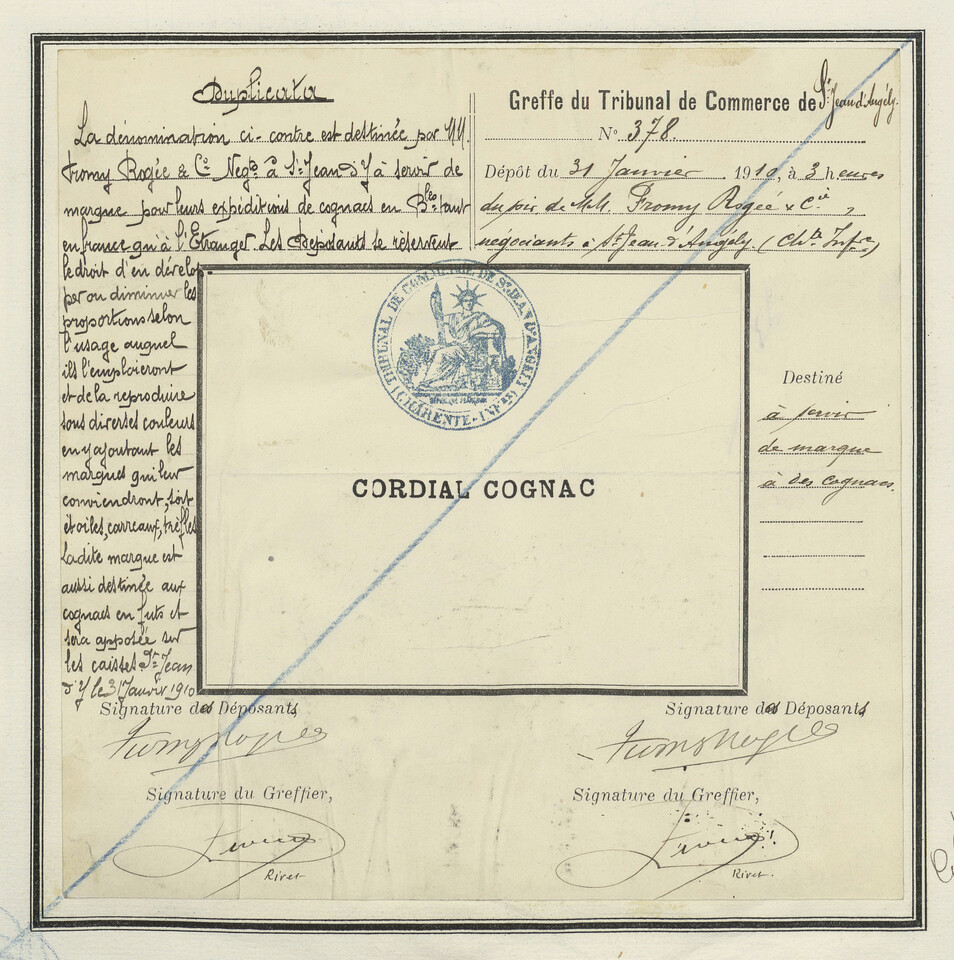 Duplicata
La dénomination ci-contre est destinée par MM.
Fromy Rogée & Co Negts à St Jean d'Y à servir de
marque pour leurs expéditions de cognacs en Blles tant
en france qu'à l'Etranger. Les Déposants se réservent
le droit d'en dévelop
per ou diminuer les
proportions selon
l'usage auquel
ils l'emploieront
et de la reproduire
sous diverses couleurs
en y ajoutant les
marques qui leur
conviendront, soit
étoiles, carreaux, trèfles
La dite marque est
aussi destinée aux
cognacs en futs et
sera apposée sur
les caisses. St Jean
d'Y le 31 Janvier 1910
Greffe du Tribunal de Commerce de St Jean d'Angély.
No 378.
Dépôt du 31 Janvier 1910, à 3 heures
du soir de MM. Fromy Rogée & Cie,
négociants à St Jean d'Angély (Chte Infre)
TRIBUNAL DE COMMERCE DE St JEAN D'ANGELY
(CHARENTE-INFRE)
CORDIAL COGNAC
Destiné
à servir
de marque
à des cognacs.
Signature des Déposants
Fromy Rogée
Signature du Greffier,
Rivet
Rivet
Signature des Déposants
Fromy Rogée
Signature du Greffier,
Rivet
Rivet.